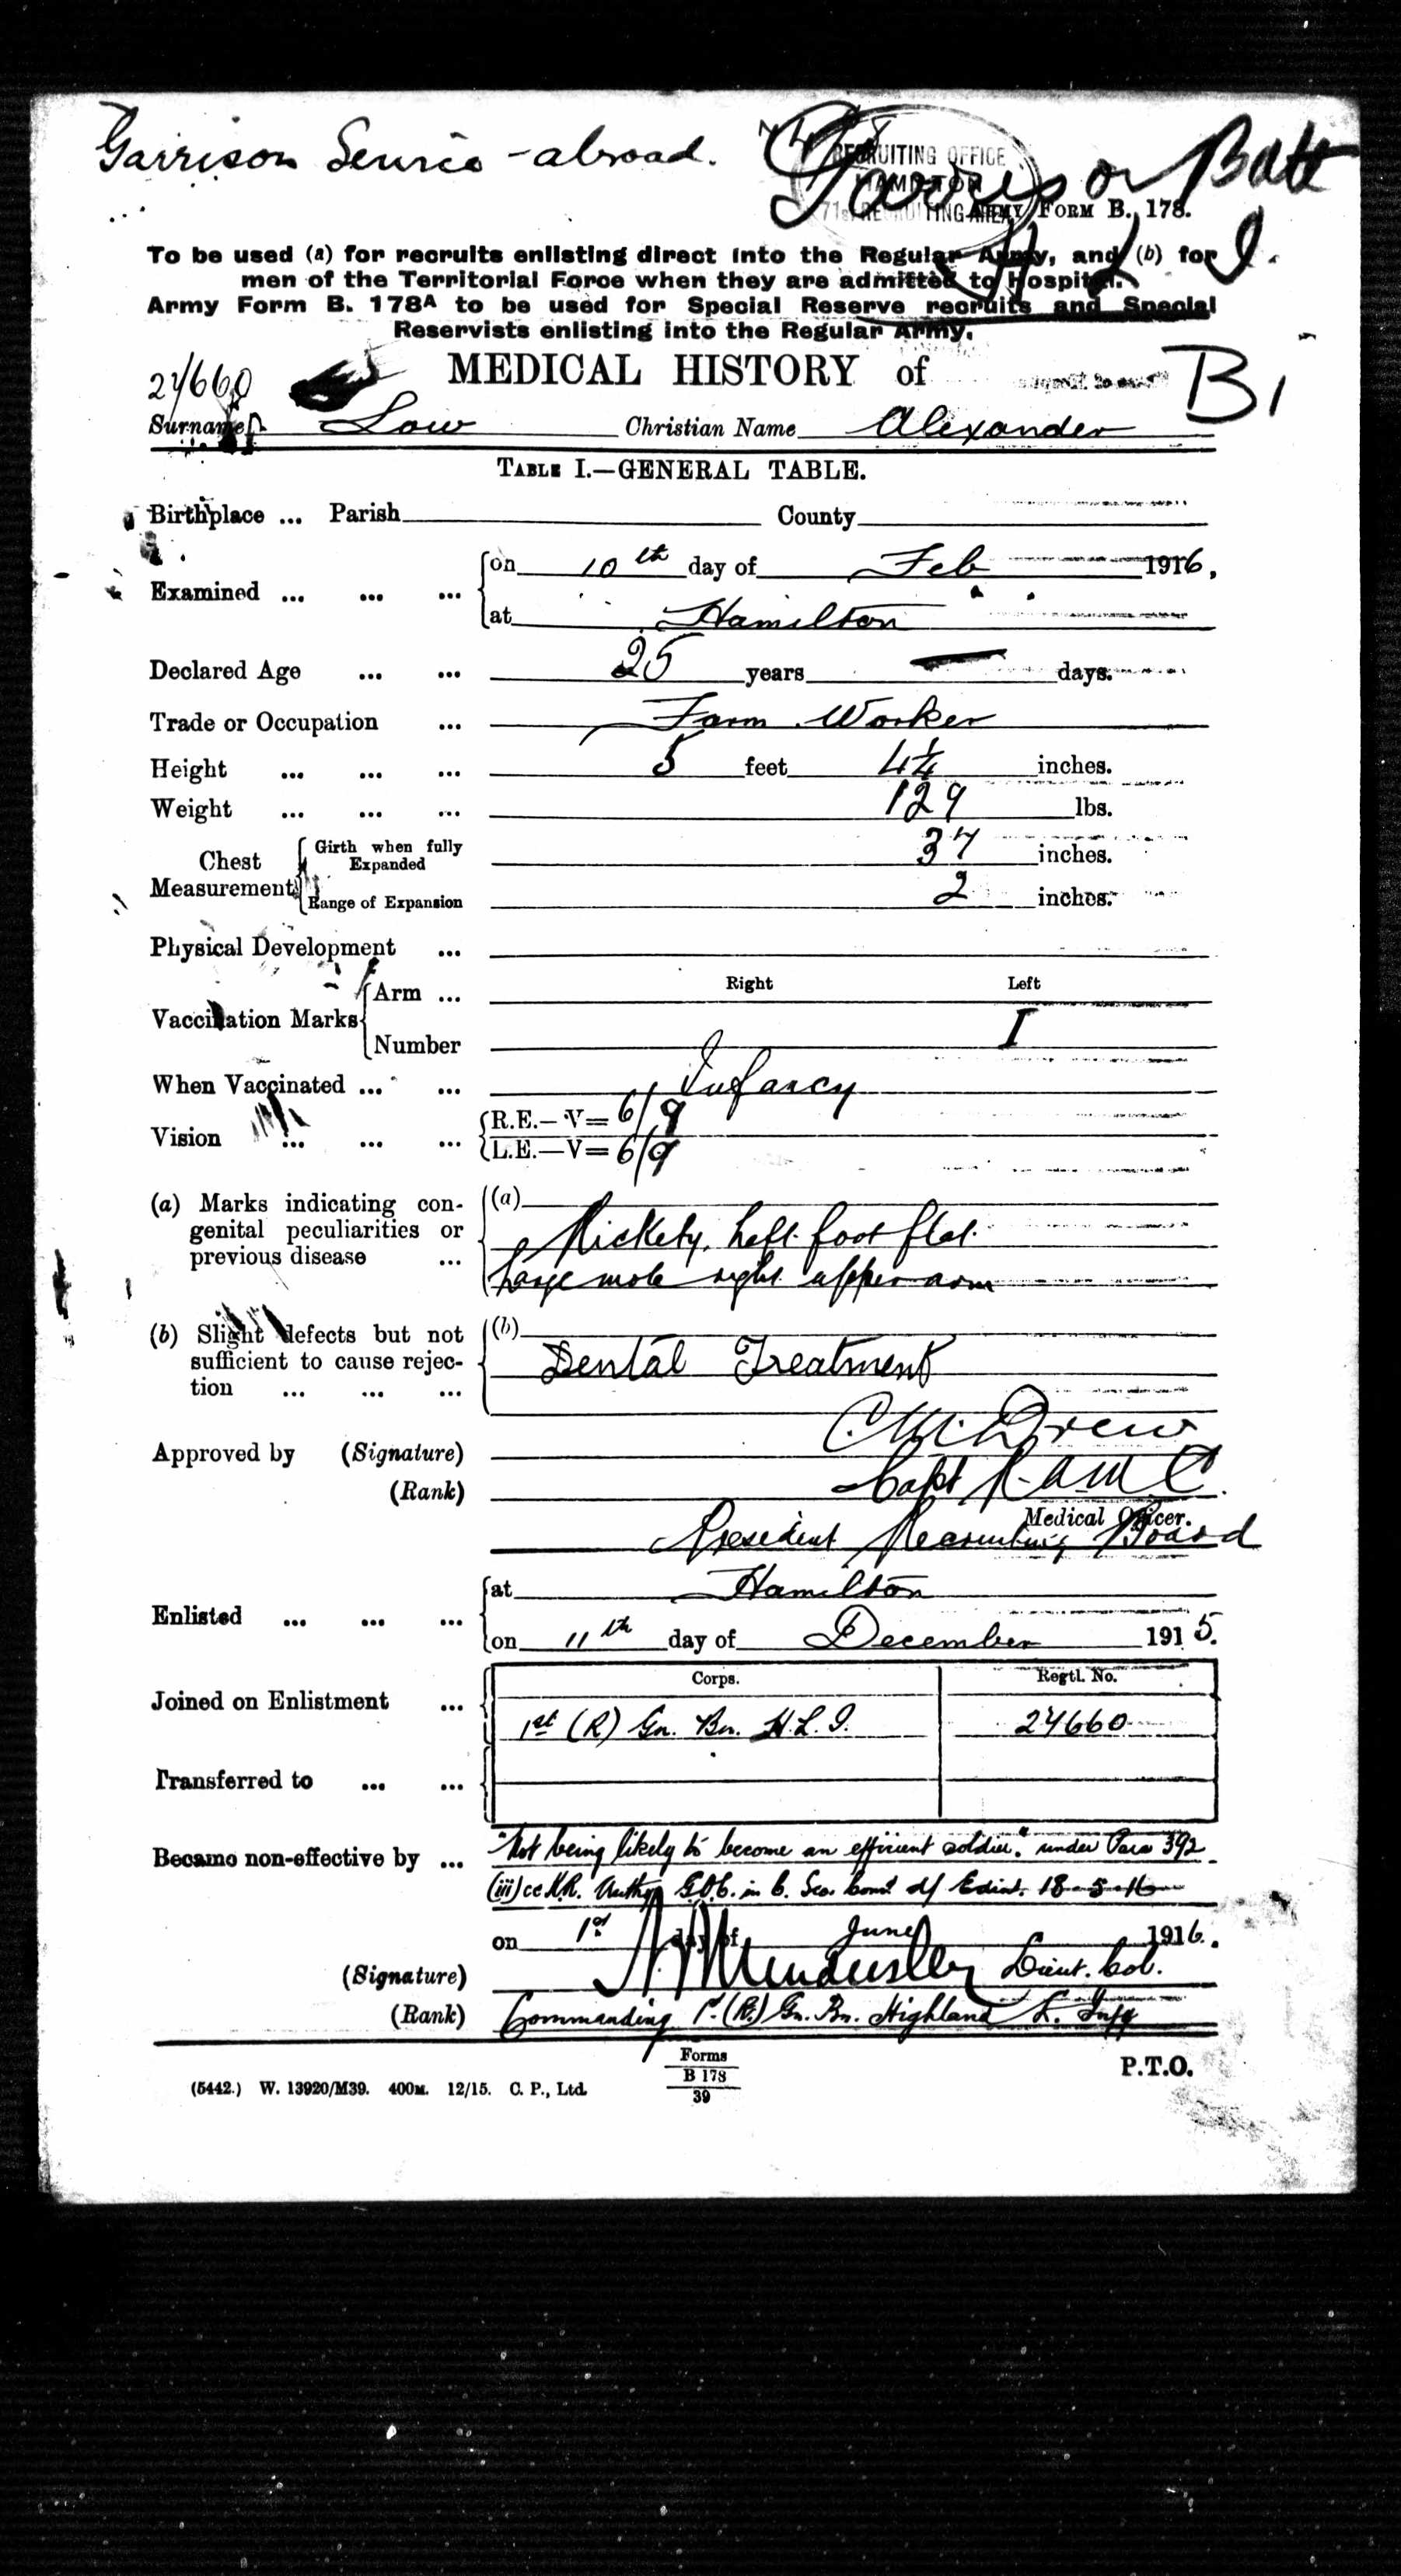 Garrison Service - abroad.
Garrison Batt
RECRUITING OFFICE
HAMILTON
71st RECRUITING AREA
ARMY FORM B. 178.
H L I.
To be used (a) for recruits enlisting direct into the Regular Army, and (b) for
men of the Territorial Force when they are admitted to Hospital.
Army Form B. 178A to be used for Special Reserve recruits and Special
Reservists enlisting into the Regular Army.
MEDICAL HISTORY of
B1
24660
Surname Low Christian Name Alexander
TABLE I.—GENERAL TABLE.
Birthplace ... Parish County
Examined ... ... ... on 10th day of Feb 1916,
at Hamilton
Declared Age ... ... 25 years — days.
Trade or Occupation ... Farm Worker
Height ... ... ... 5 feet 4¼ inches.
Weight ... ... ... 129 lbs.
Chest Measurement Girth when fully Expanded 37 inches.
Range of Expansion 2 inches.
Physical Development ...
Right Left
Vaccination Marks Arm ...
Number I
When Vaccinated ... ... Infancy
Vision ... ... ... R.E.—V= 6/9
L.E.—V= 6/9
(a) Marks indicating con-
genital peculiarities or
previous disease ...
(a)
Rickety, Left foot flat.
Large mole right upper arm
(b) Slight defects but not
sufficient to cause rejec-
tion ... ... ...
(b)
Dental Treatment
Approved by (Signature) C. M. Drew
(Rank) Capt R.A.M.C.
Medical Officer.
President Recruiting Board
Enlisted ... ... ... at Hamilton
on 11th day of December 1915.
Corps. Regtl. No.
Joined on Enlistment ... 1st (R) Gn. Bn. H.L.I. 24660
Transferred to ... ...
Became non-effective by ... "Not being likely to become an efficient soldier." under Para 392
(iii) cc K.R. Authy G.O.C. in C. Sco. Comd d/ Edinr. 18-5-16
on 1st day of June 1916.
(Signature) Lieut. Col.
(Rank) Commanding 1st (R.) Gn. Bn. Highland L. Infy
Forms
B 178
39
P.T.O.
(5442.) W. 13920/M39. 400M. 12/15. C. P., Ltd.